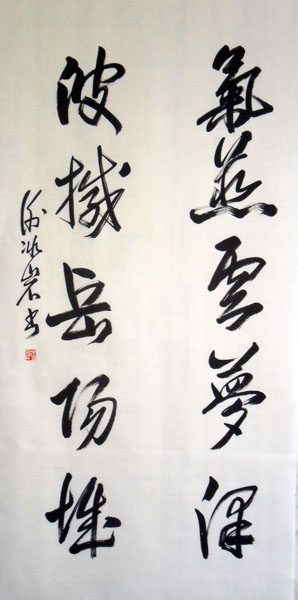 氣蒸雲夢澤
波撼岳陽城
謝冰岩書